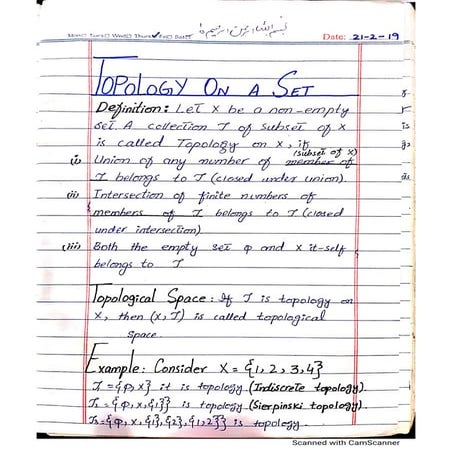 بسم اللہ الرحمن الرحیم
Mon□ Tues□ Wed□ Thurs✓ Fri□ Sat□ Date: 21-2-19
TOPOLOGY ON A SET
Definition: Let X be a non-empty
set. A collection T of subset of X
is called Topology on X, if
(subset of X)
(i) Union of any number of member of
T belongs to T (closed under union).
(ii) Intersection of finite numbers of
members of T belongs to T (closed
under intersection)
(iii) Both the empty set φ and X it-self
belongs to T
Topological Space: If T is topology on
X, then (X,T) is called topological
space.
Example: Consider X = {1,2,3,4}
T₁={φ,X} it is topology (Indiscrete topology).
T₂={φ,X,{1}} is topology (Sierpinski topology).
T₃={φ,X,{1},{2},{1,2}} is topology.
Scanned with CamScanner